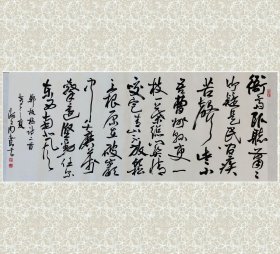 衙斋卧听萧萧
竹疑是民间疾
苦声些小
吾曹州县吏一
枝一叶总关情
咬定青山不放松
立根原在破岩
中千磨万
击还坚劲任尔
东西南北风
郑板桥诗二首